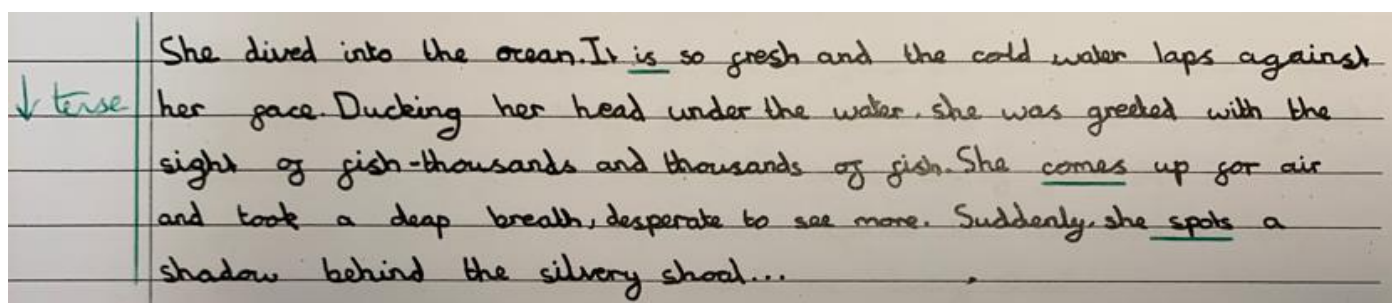 She dived into the ocean. It is so fresh and the cold water laps against
↓ tense her face. Ducking her head under the water, she was greeted with the
sight of fish-thousands and thousands of fish. She comes up for air
and took a deap breath, desperate to see more. Suddenly, she spots a
shadow behind the silvery shoal...